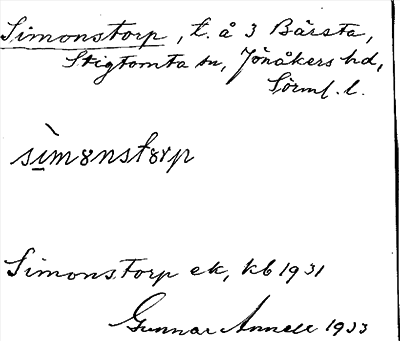 Simonstorp, t. å 3 Bärsta,
Stigtomta sn, Jönåkers hd,
Sörml. l.
sìm̲ɷnstɷrp
Simonstorp ek, kb 1931
Gunnar Annell 1933